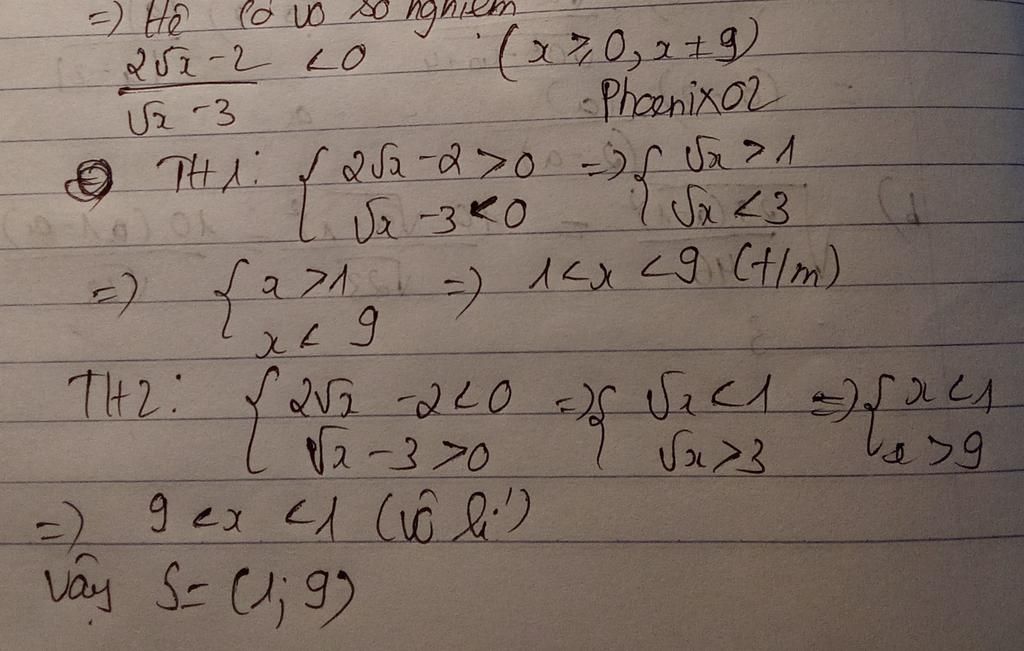 =) Hệ có vô số nghiệm
(2√x - 2)/(√x - 3) < 0 (x ≥ 0, x ≠ 9)
Phoenix02
TH1: { 2√x - 2 > 0 => { √x > 1
√x - 3 < 0 √x < 3
=) { x > 1 =) 1 < x < 9 (t/m)
x < 9
TH2: { 2√x - 2 < 0 =) { √x < 1 =) { x < 1
√x - 3 > 0 √x > 3 x > 9
=) 9 < x < 1 (vô lí)
Vậy S = (1; 9)